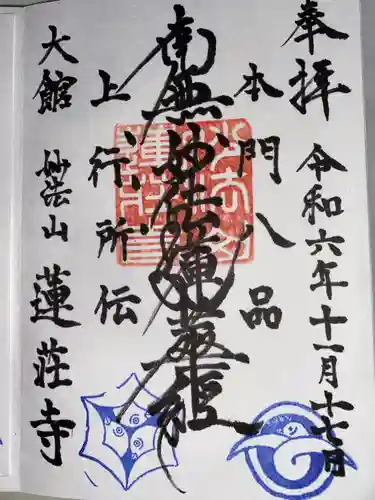 奉拝
令和六年十一月十七日
本門八品
南無妙法蓮華経
上行所伝
大館
妙法山
蓮荘寺